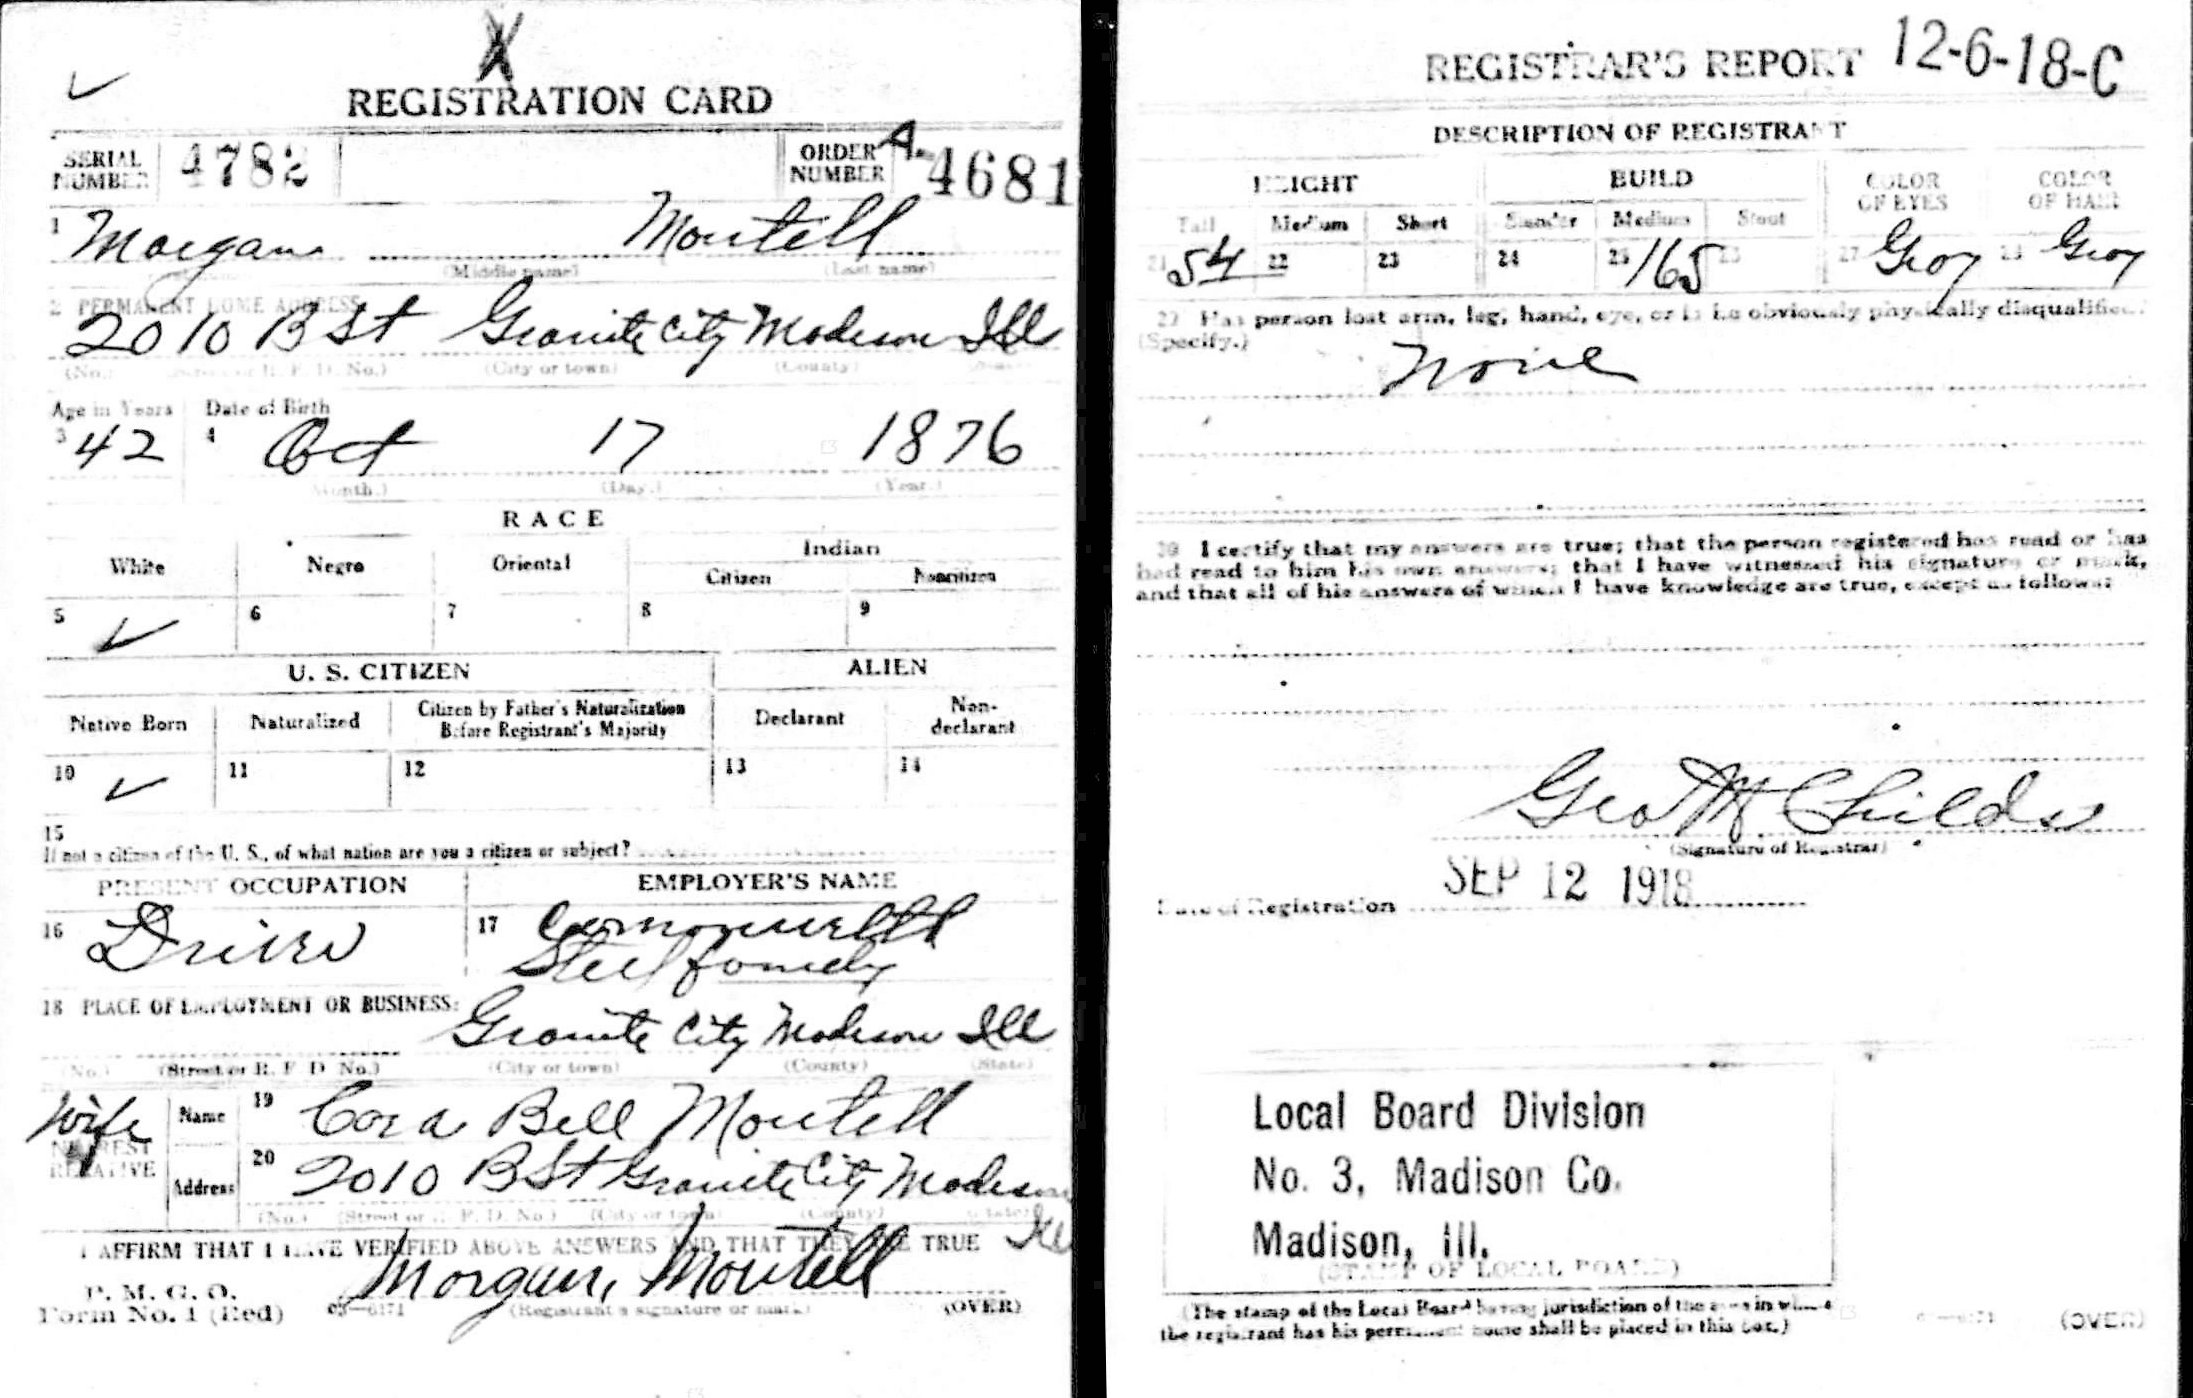 REGISTRATION CARD
SERIAL NUMBER 4782 ORDER NUMBER A 4681
1 Morgan Montell
(Middle name) (Last name)
2 PERMANENT HOME ADDRESS
2010 B St Granite City Madison Ill
(No.) (City or town) (County)
Age in Years Date of Birth
3 42 4 Oct 17 1876
(Month.) (Day.) (Year.)
RACE
White Negro Oriental Indian
Citizen Noncitizen
5 ✓ 6 7 8 9
U. S. CITIZEN ALIEN
Native Born Naturalized Citizen by Father's Naturalization Before Registrant's Majority Declarant Non-declarant
10 ✓ 11 12 13 14
15
If not a citizen of the U. S., of what nation are you a citizen or subject?
PRESENT OCCUPATION EMPLOYER'S NAME
16 Driver 17 Comonwelth
Steel
18 PLACE OF EMPLOYMENT OR BUSINESS:
Granite City Madison Ill
(No.) (Street or R. F. D. No.) (City or town) (County) (State)
Wife
NEAREST RELATIVE
Name 19 Cora Bell Montell
Address 20 2010 B St Granite City Madison
Ill
(No.) (Street or R. F. D. No.) (City or town) (County) (State)
I AFFIRM THAT I HAVE VERIFIED ABOVE ANSWERS AND THAT THEY ARE TRUE
P. M. G. O.
Form No. 1 (Red) 03—6171 Morgan Montell
(Registrant's signature or mark) (OVER)
REGISTRAR'S REPORT 12-6-18-C
DESCRIPTION OF REGISTRANT
HEIGHT BUILD COLOR OF EYES COLOR OF HAIR
Tall Medium Short Slender Medium Stout
21 54 22 23 24 25 165 26 27 Gray 28 Gray
29 Has person lost arm, leg, hand, eye, or is he obviously physically disqualified?
(Specify.)
None
30 I certify that my answers are true; that the person registered has read or has
had read to him his own answers; that I have witnessed his signature or mark,
and that all of his answers of which I have knowledge are true, except as follows:
Geo M Childs
(Signature of Registrar)
Date of Registration SEP 12 1918
Local Board Division
No. 3, Madison Co.
Madison, Ill.
(STAMP OF LOCAL BOARD)
(The stamp of the Local Board having jurisdiction of the area in which
the registrant has his permanent home shall be placed in this box.)
(OVER)